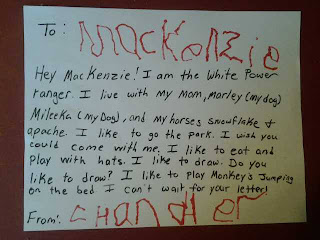 To: MacKenzie
Hey MacKenzie! I am the White Power
ranger. I live with my Mom, Marley (my dog)
Mileeka (my Dog), and my horses snowflake &
apache. I like to go the park. I wish you
could come with me. I like to eat and
play with hats. I like to draw. Do you
like to draw? I like to play Monkey's Jumping
on the bed I can't wait for your letter!
From: CHANDLER